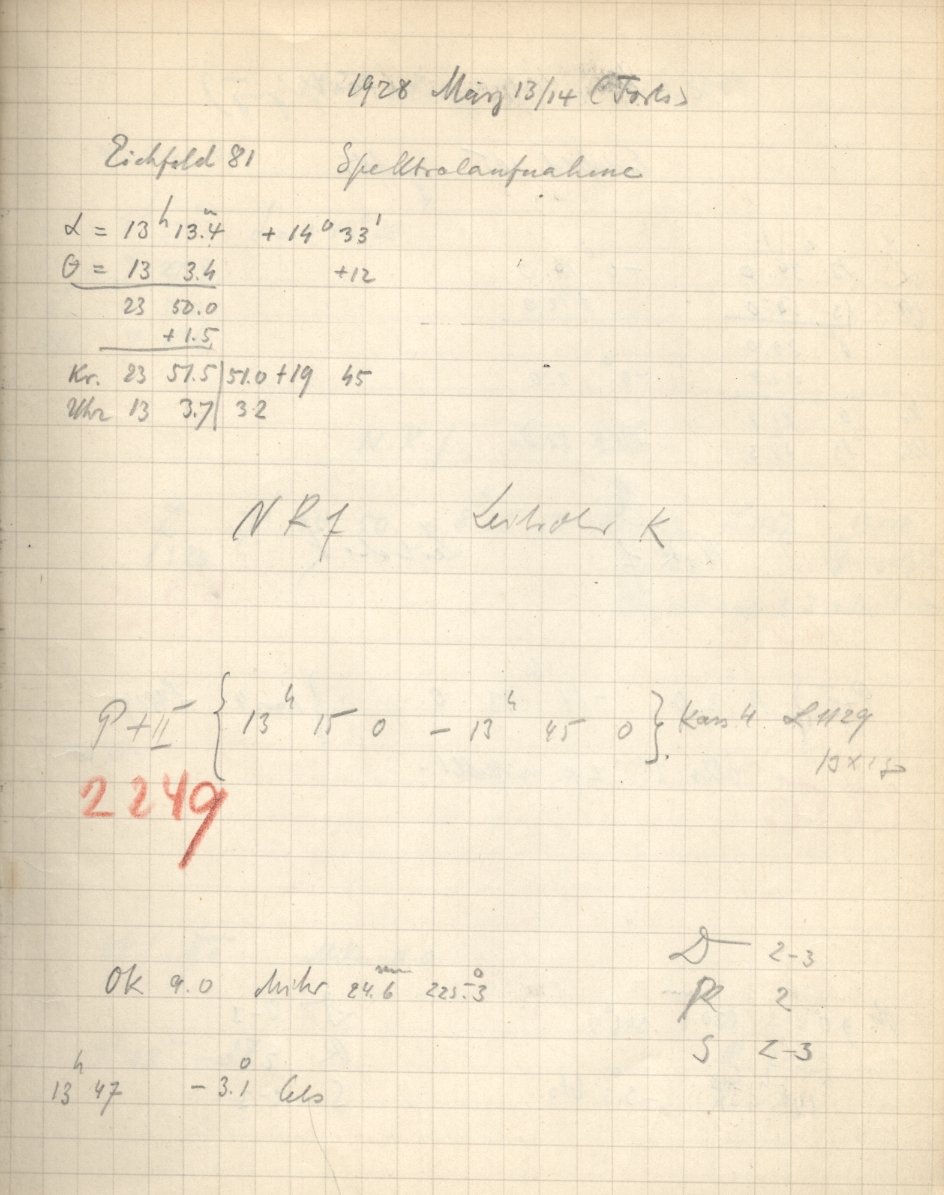 1928 März 13/14 (Forts)
Eichfeld 81 Spektralaufnahme
α = 13ʰ 13.4ᵐ + 14° 33'
θ = 13 3.4 +12
23 50.0
+ 1.5
Kr. 23 51.5 | 51.0 + 19 45
Uhr 13 3.7 | 3.2
N R f Leitrohr K
P + II { 13ʰ 15 0 – 13ʰ 45 0 } Kass 4. L 1129
2249
D 2-3
OK 9.0 Mikr 24.6 225.3°
R 2
S 2-3
13ʰ 47 – 3.1° Cels